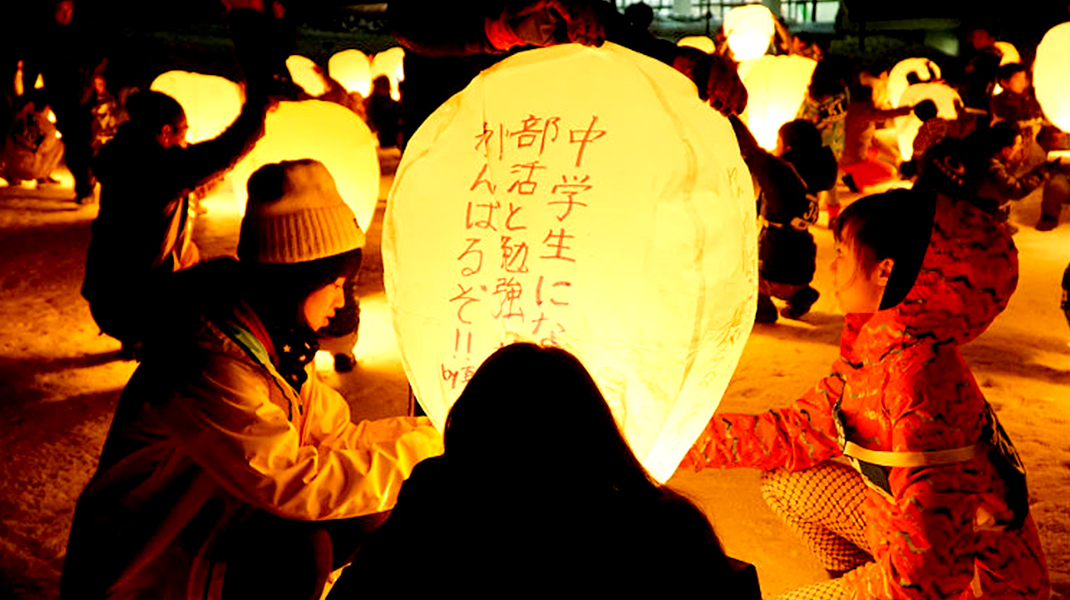 中学生にな
部活と勉強
がんばるぞ!!
by